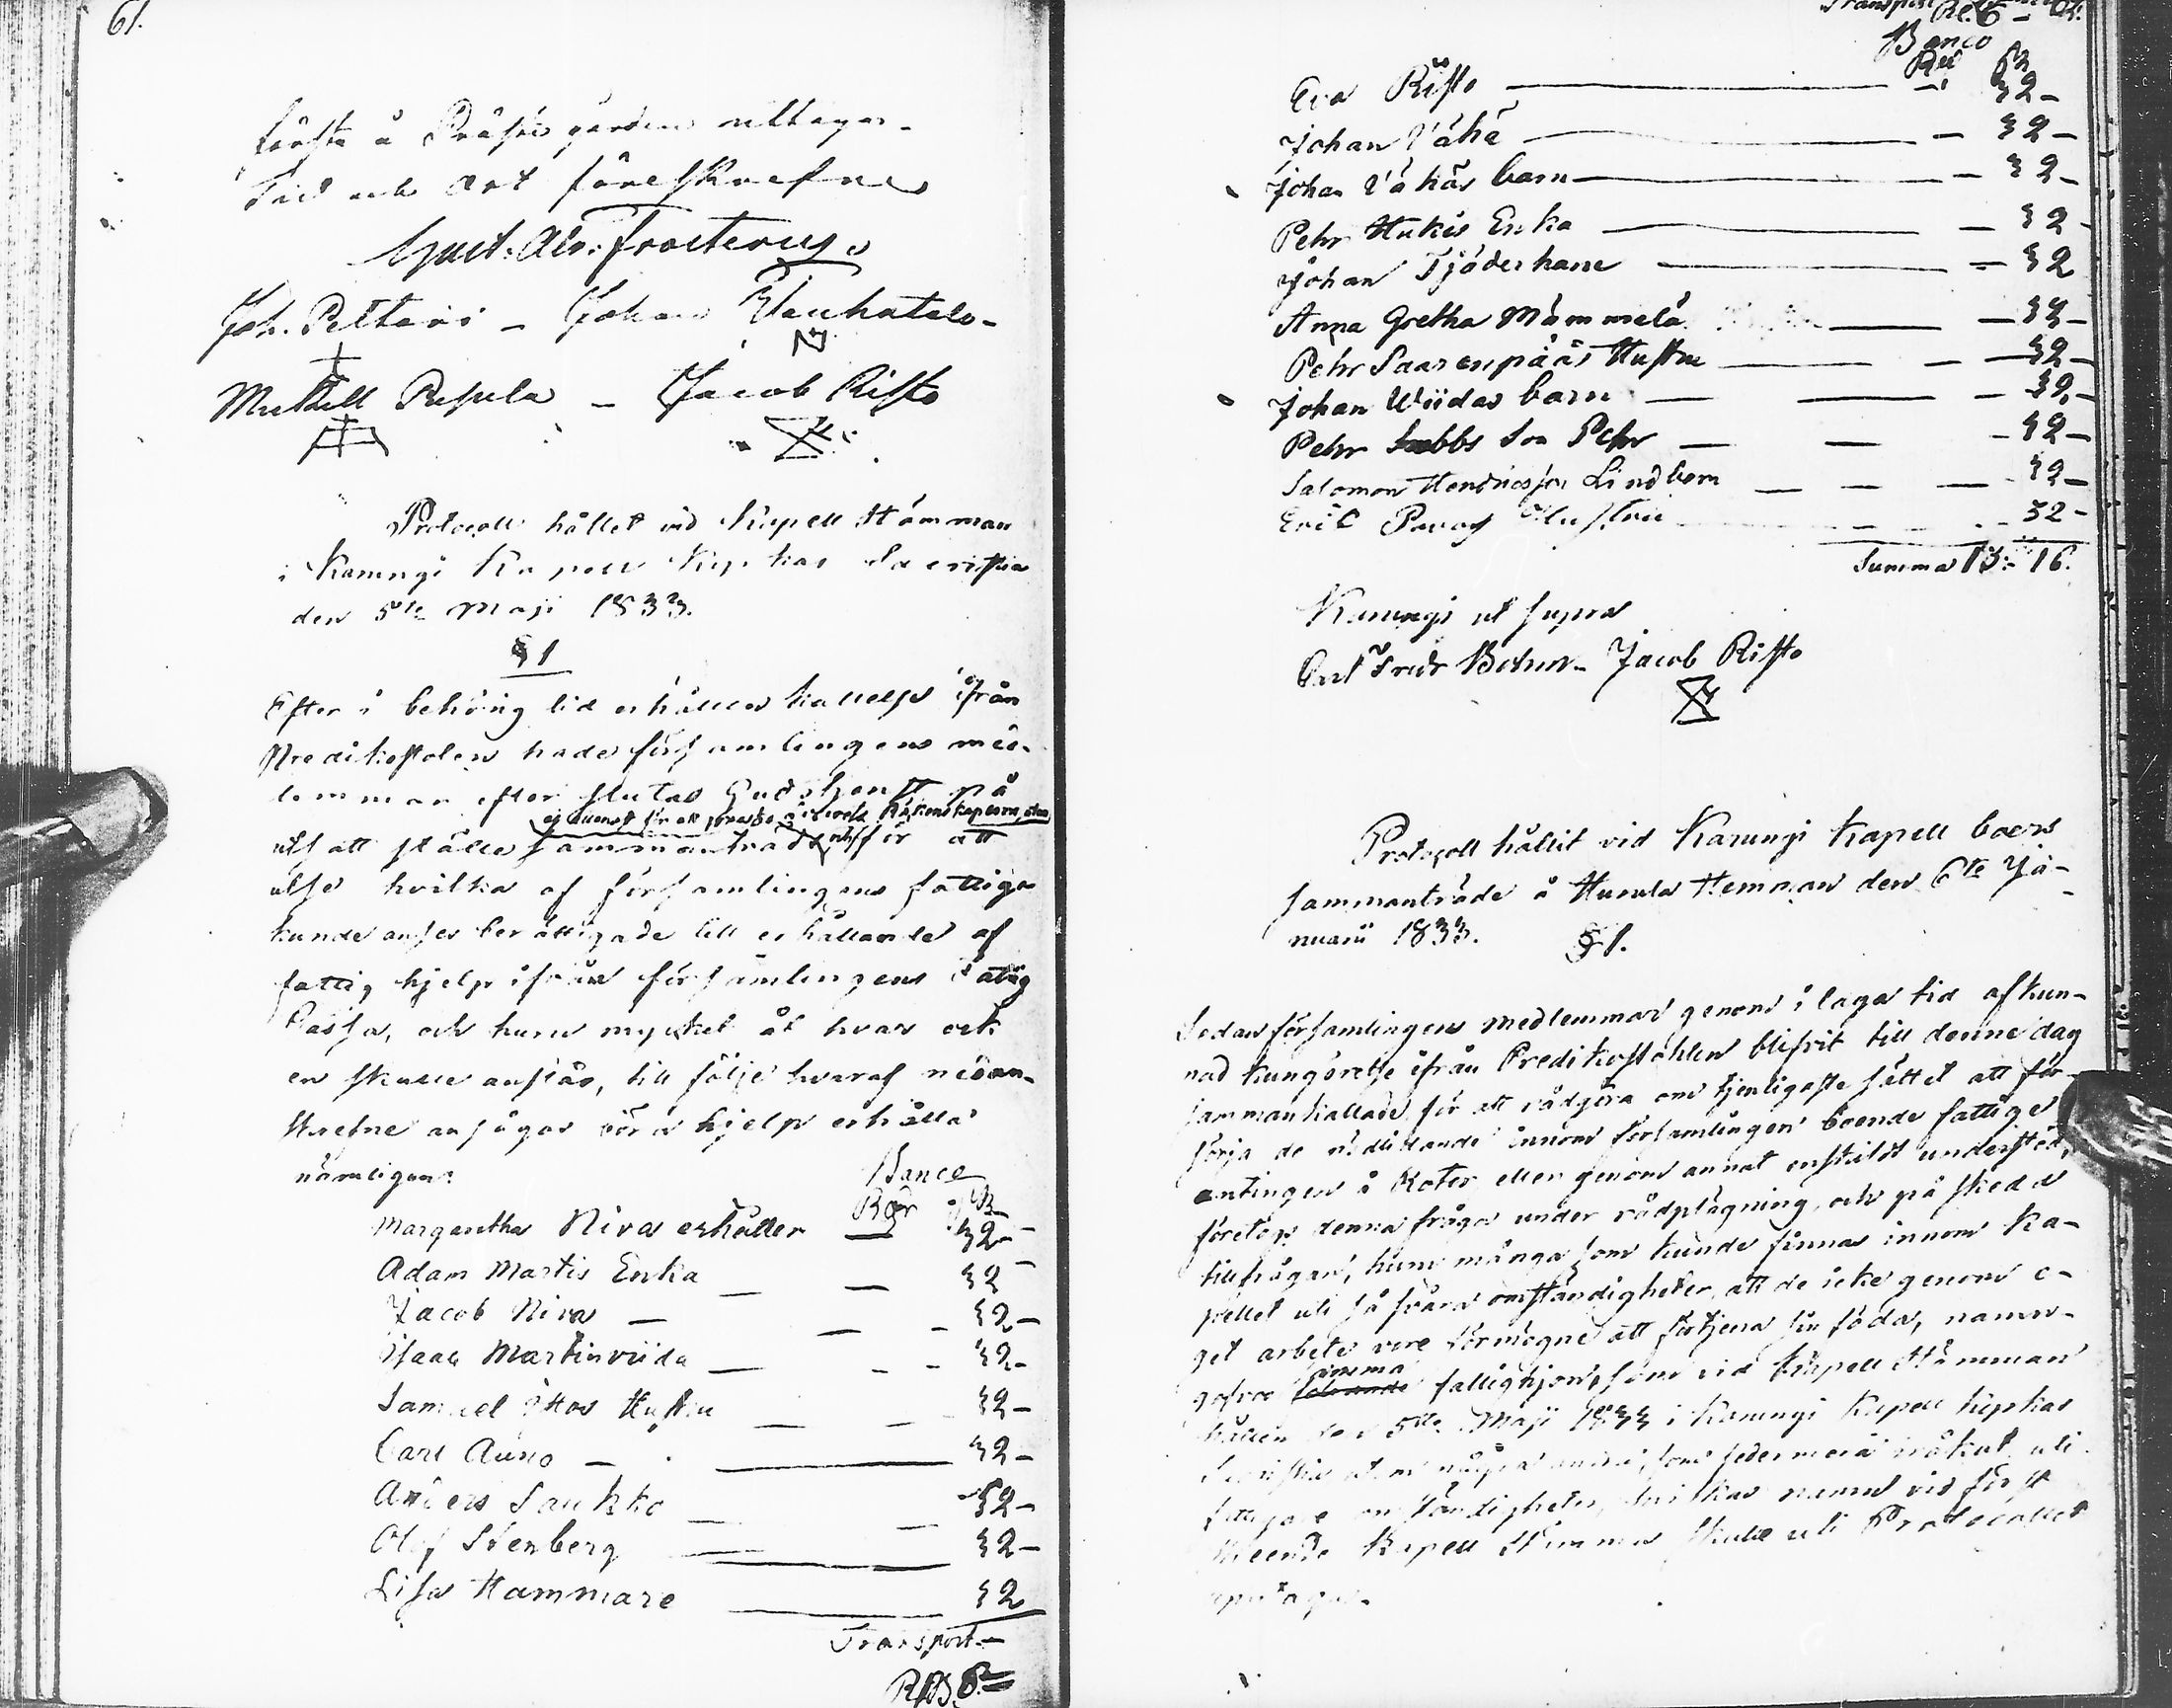 61.
å gårdens
Tid och Ort föreskrefne
Gust: Alr: Frosterus
Joh. Pettari - Johan Vanhatalo-
Mickell Pesula - Jacob Risto
Protocoll hållet vid Kapell Stämman
i Karungi Kapell Kyrkas Sacristia
den 5te Maji 1833.
§ 1
Efter i behörig tid erhållen kallelse ifrån
Predikostolen hade församlingens med-
lemmar efter slutad Gudstjenst på
ej allenast för att Räkenskaperna, utan
att ställe sammanträdt för att
hvilka af församlingens fattiga
kunde anses berättigade till erhållande af
fattig hjelp ifrån församlingens Fattig
Cassa, och huru mycket åt hvar och
en skulle anslås, till följe hvaraf nedan-
skrefne ansågos böra hjelp erhålla
nämligen:
Banco
Rdr sk
Margaretha Niva erhåller — 32-
Adam Martis Enka — — 32 -
Jacob Niva — — - 32-
Isaac Martinviida — - - 32-
Samuel Hustru — - 32-
Carl Auno — — 32-
Anders Saukko — — 32-
Olof Stenberg — 32-
Lisa Hammare — 32
Transport-
RdB 6.=
Transport Rd. 6 -
Banco
Rd sk
Eva Risto — 32-
Johan Vähä — - 32-
Johan Vähäs barn — - 32-
Pehr Hukis Enka — - 32-
Johan Tjäderhane — - 32
Anna Gretha Mämmelä — - 32-
Pehr Saarenpääs Hustru — - - 32-
Johan Wiidas barn — — - 32-
Pehr Son Pehr — — - 32-
Salomon Hendricsson Lindbom — — — 32-
Eric Hustru - 32-
Summa 13:- 16.
Karungi ut supra
Carl Fredr Bohm- Jacob Risto
Protocoll hållit vid Karungi Kapell boers
sammanträde å Hemman den 6te Ja-
nuarii 1833. § 1.
Sedan församlingens medlemmar genom i laga tid afkun-
nad kungörelse ifrån Predikostohlen blifvit till denne dag
sammankallade för att rådgöra om tjenligaste sättet att för-
sörja de nödlidande innom församlingen boende fattige
antingen å Roter eller genom annat enskildt understöd,
företogs denna fråga under rådplägning, och på skedd
tillfrågan, huru många som kunde finnas innom Ka-
pellet uti så svåra omständigheter, att de icke genom e-
get arbete vore förmögne att förtjena sin föda, namn-
gofvos samma fattighjon, som vid Kapell Stämman
hållen den 5te Maji 1833 i Karungi Kapell kyrkas
Sacristia utom några andra, som sedermera råkat uti
omständigheter, hvilkas namn vid först
skeende Kapell Stämma skulle uti Protocollet
upptagas.